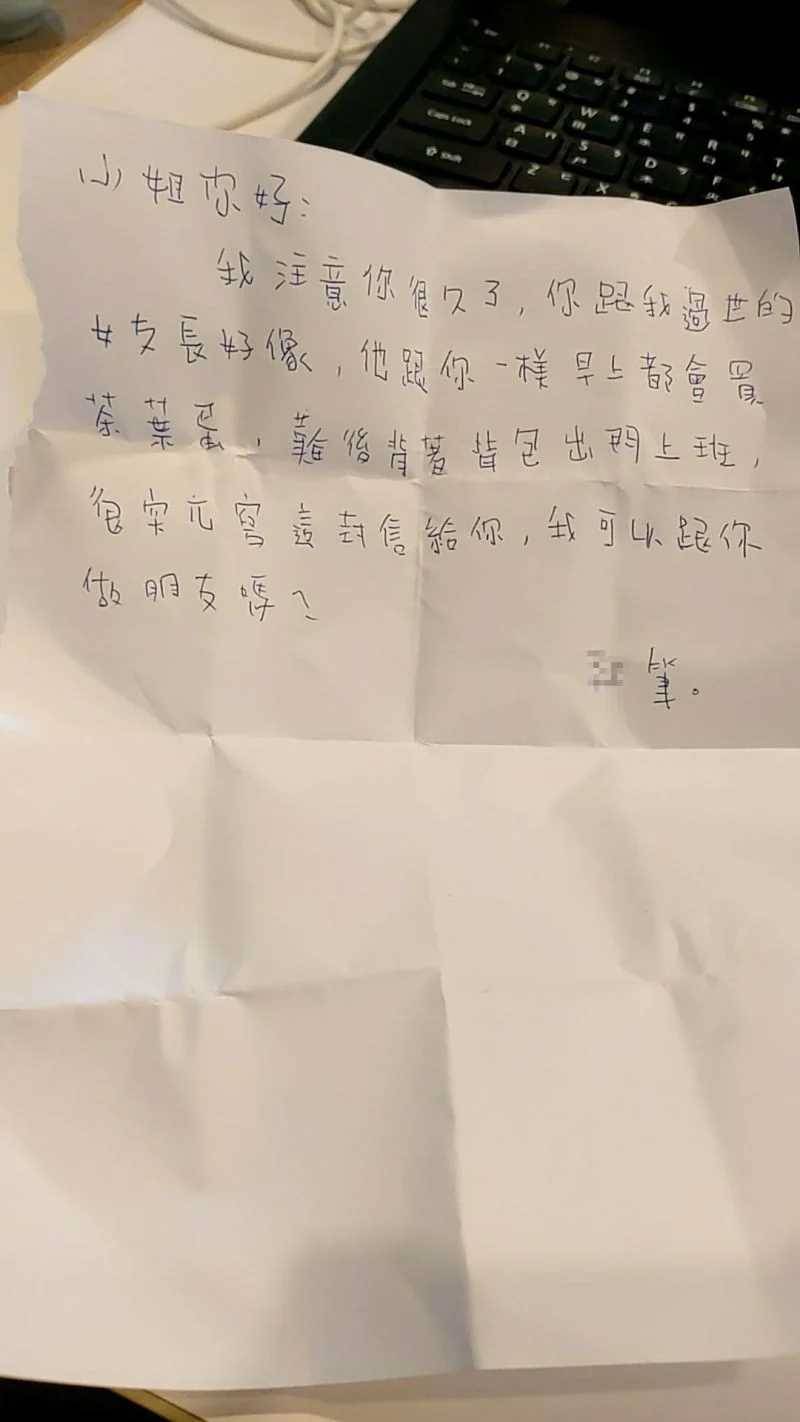 小姐你好：
我注意你很久了，你跟我過世的
女友長好像，他跟你一樣早上都會買
茶葉蛋，難後背著背包出門上班，
很突兀寫這封信給你，我可以跟你
做朋友嗎？
筆。
Caps Lock
Shift
Q W E R T
A S D F
Z X